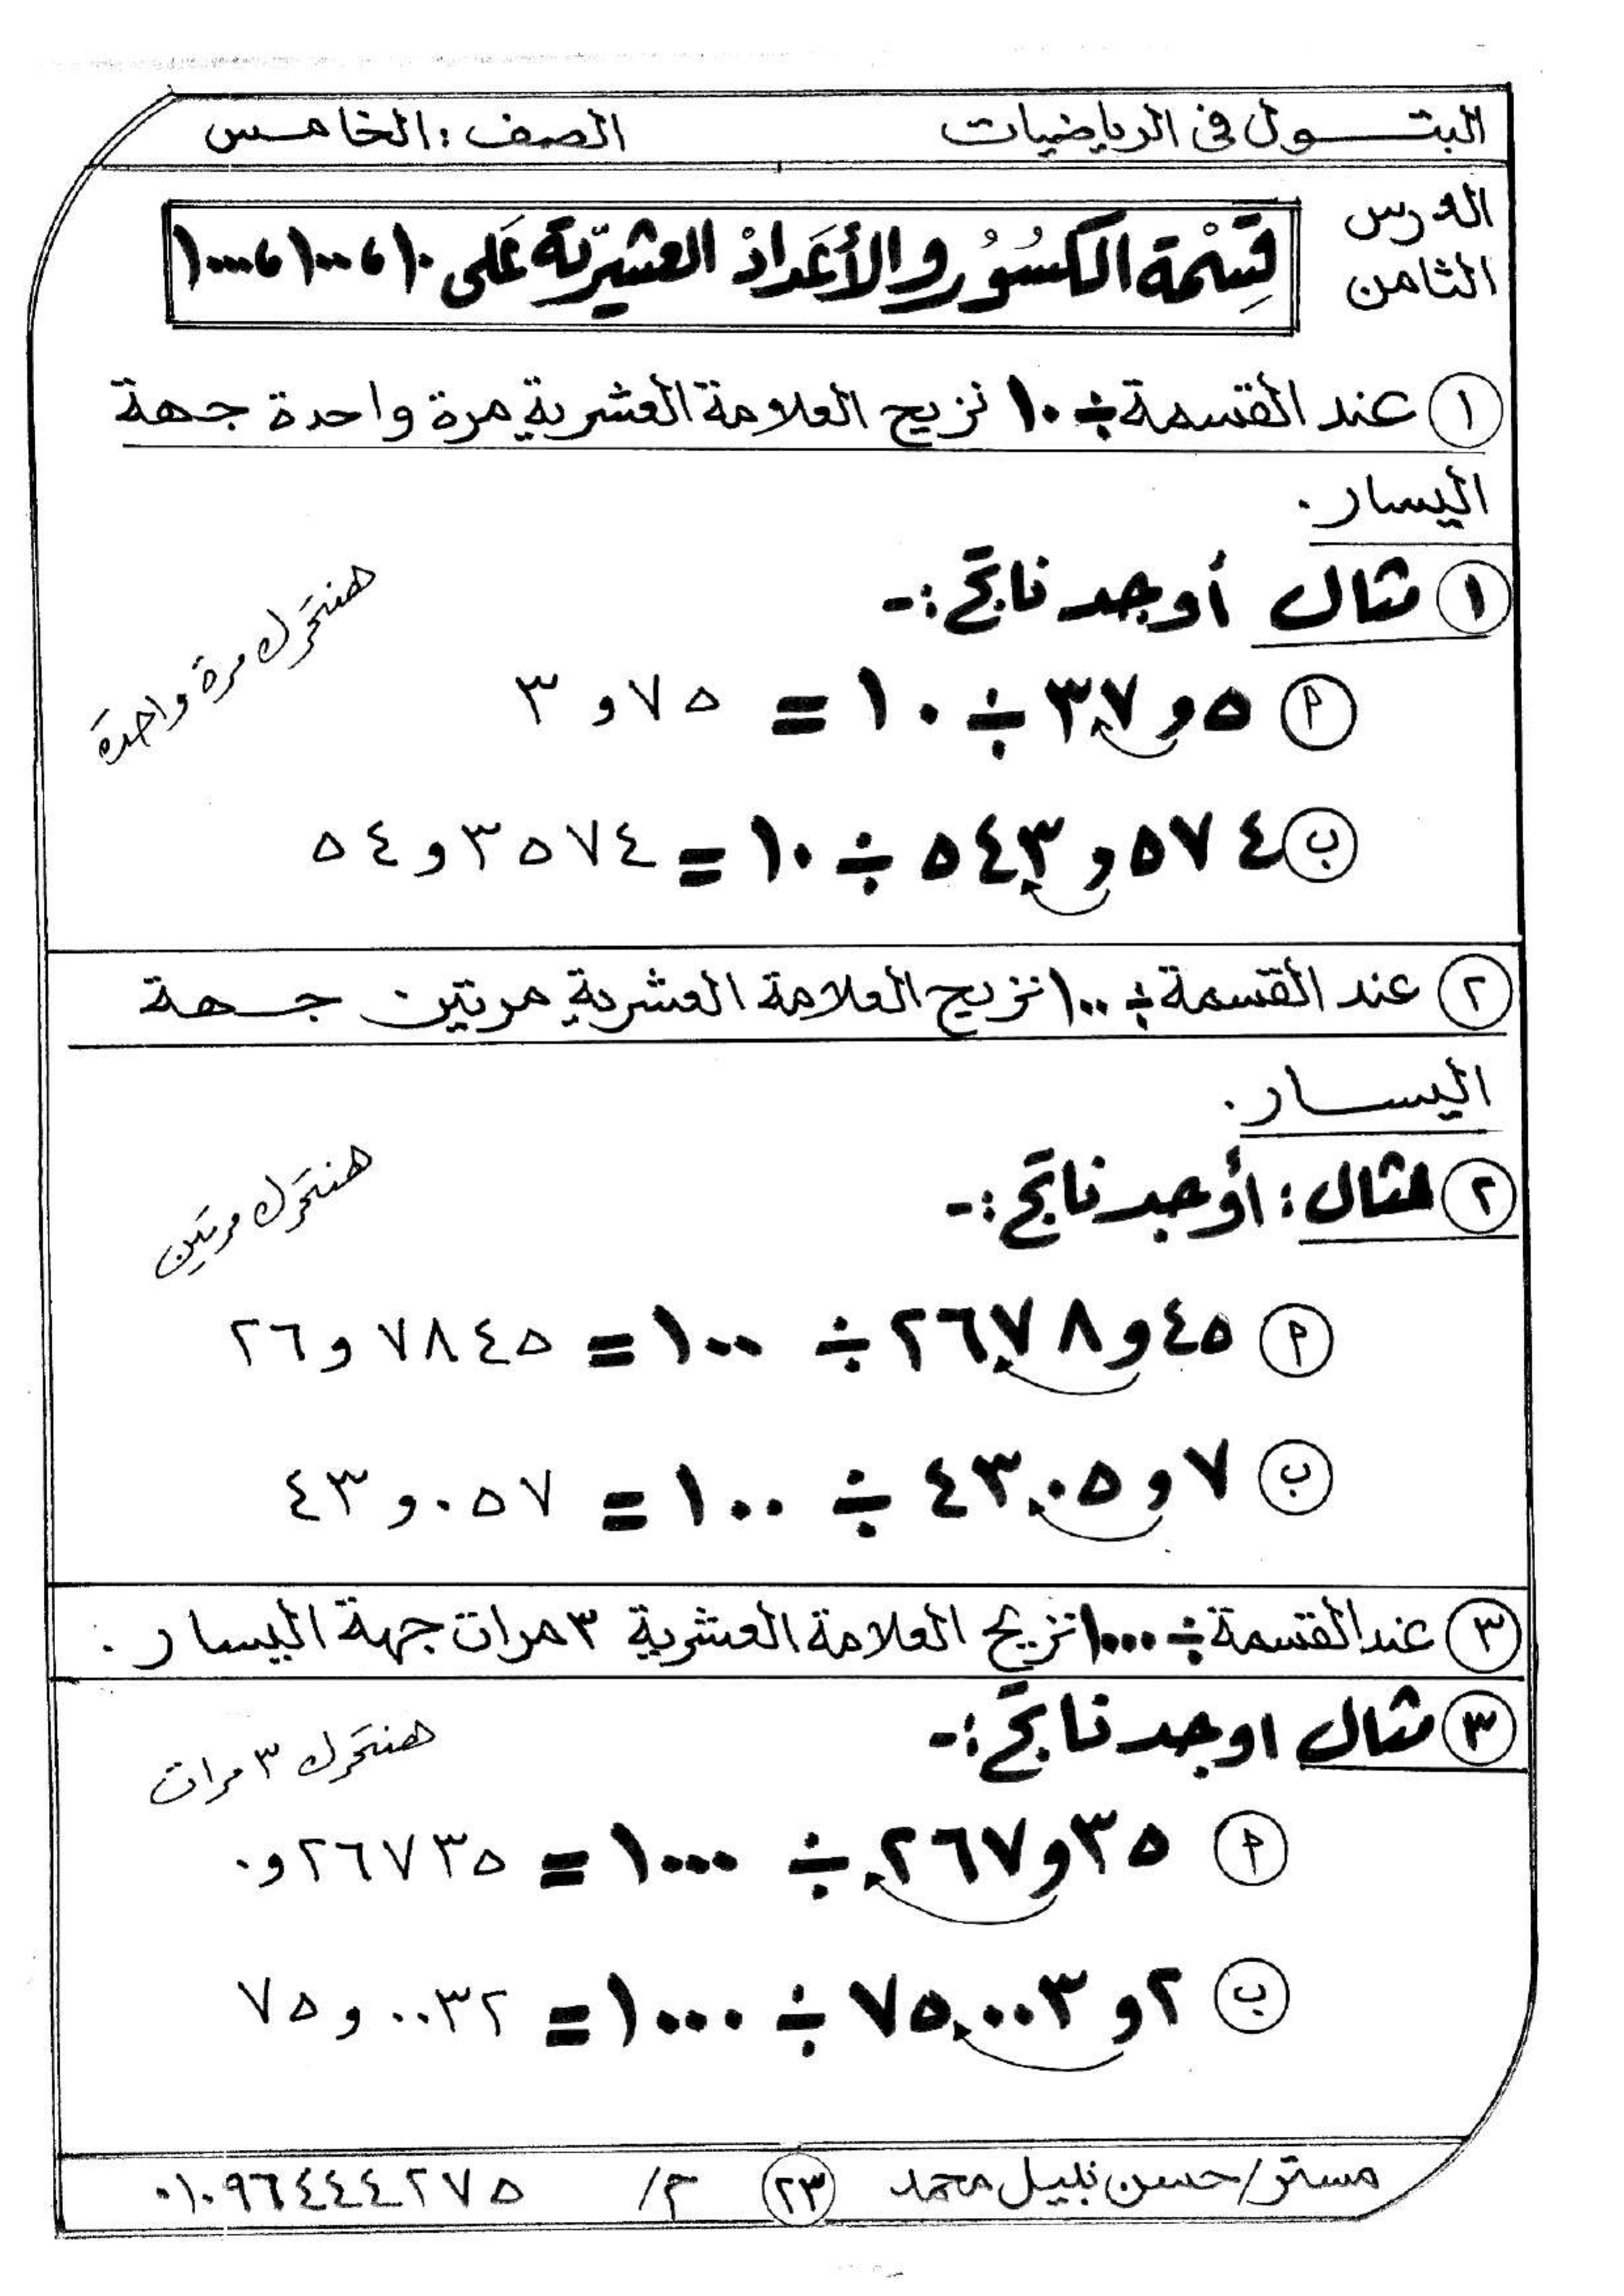 البتول في الرياضيات الصف: الخامس
الدرس الثامن
قِسْمة الكسُوُر والأعَدادْ العشيّرية عَلى ١٠، ١٠٠، ١٠٠٠
١ عند القسمة ÷ ١٠ نزيح العلامة العشرية مرة واحدة جهة
اليسار.
١ مثال أوجد ناتج :-
هنتحرك مرة واحدة
أ ٣٧و٥ ÷ ١٠ = ٣و٧٥
ب ٥٤٣و٥٧٤ ÷ ١٠ = ٥٤و٣٥٧٤
٢ عند القسمة ÷ ١٠٠ نزيح العلامة العشرية مرتين جهة
اليسار.
٢ مثال: أوجد ناتج :-
هنتحرك مرتين
أ ٢٦٧٨و٤٥ ÷ ١٠٠ = ٢٦و٧٨٤٥
ب ٤٣٠٥و٧ ÷ ١٠٠ = ٤٣و٠٥٧
٣ عند القسمة ÷ ١٠٠٠ نزيح العلامة العشرية ٣ مرات جهة اليسار.
٣ مثال اوجد ناتج :-
هنتحرك ٣ مرات
أ ٢٦٧و٣٥ ÷ ١٠٠٠ = ٠و٢٦٧٣٥
ب ٧٥٠٠٣و٢ ÷ ١٠٠٠ = ٧٥و٠٠٣٢
مستر/حسن نبيل محمد ٢٣ م/ ٠١٠٩٦٤٤٤٢٧٥